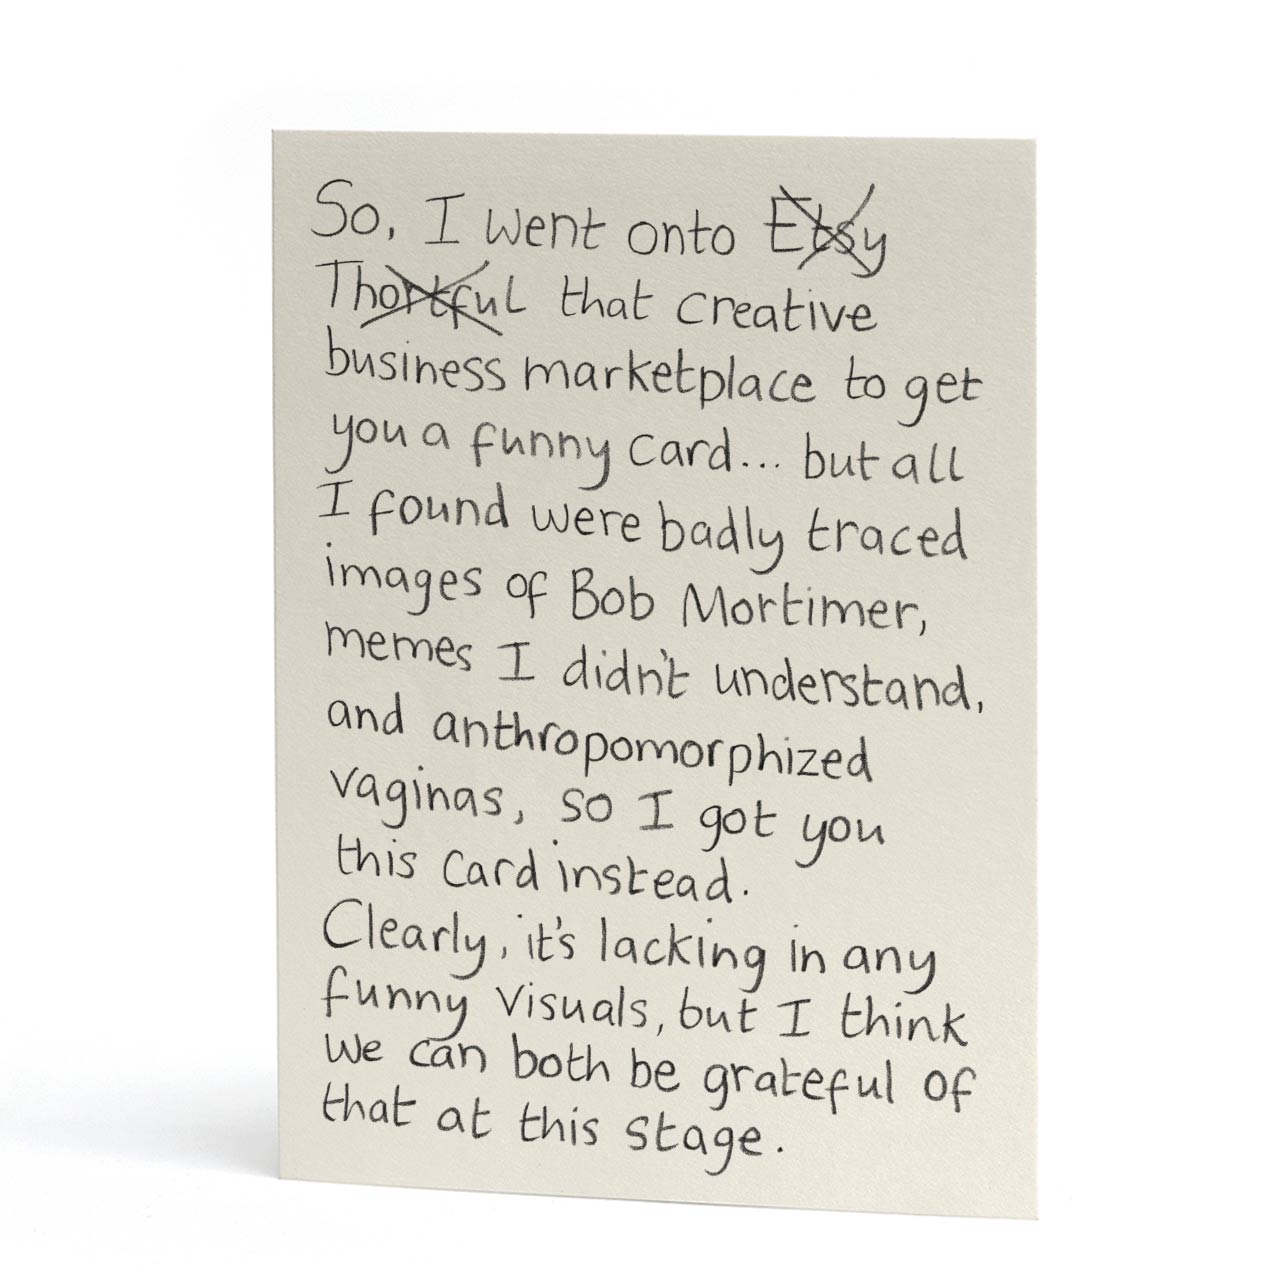 So, I went onto Etsy
Thortful that creative
business marketplace to get
you a funny card... but all
I found were badly traced
images of Bob Mortimer,
memes I didn't understand,
and anthropomorphized
vaginas, so I got you
this card instead.
Clearly, it's lacking in any
funny visuals, but I think
we can both be grateful of
that at this stage.